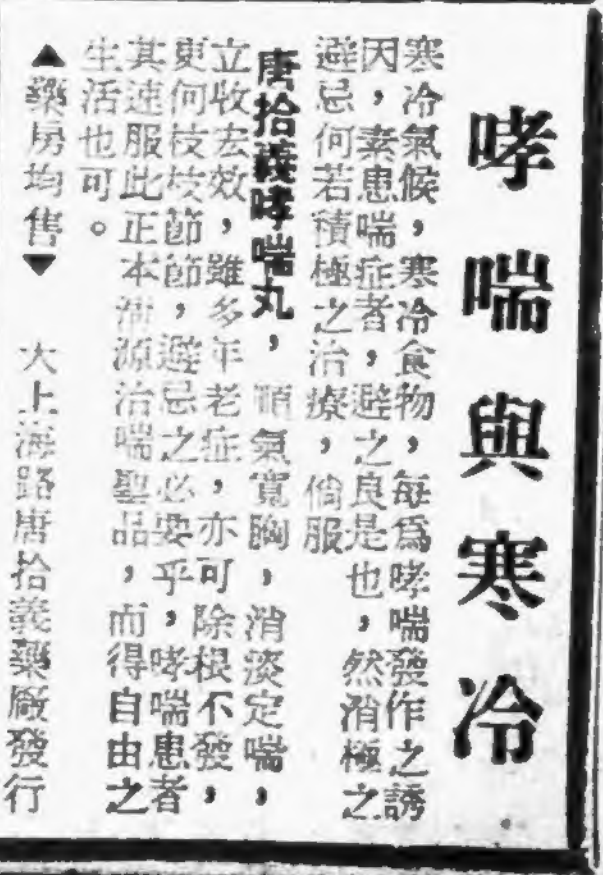 哮喘與寒冷
寒冷氣候，寒冷食物，每爲哮喘發作之誘
因，素患喘症者，避之良是也，然消極之
避忌何若積極之治療，倘服
唐拾義哮喘丸，順氣寬胸，消淡定喘，
立收宏效，雖多年老症，亦可除根不發，
更何枝枝節節，避忌之必要乎，哮喘患者
其速服此正本清源治喘聖品，而得自由之
生活也可。
▲藥房均售▼ 大上海路唐拾義藥廠發行